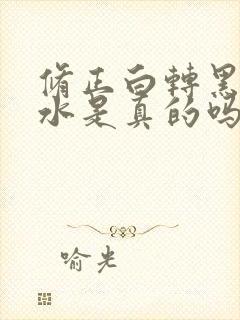 脩正白轉黑
水是真的吗
喻光